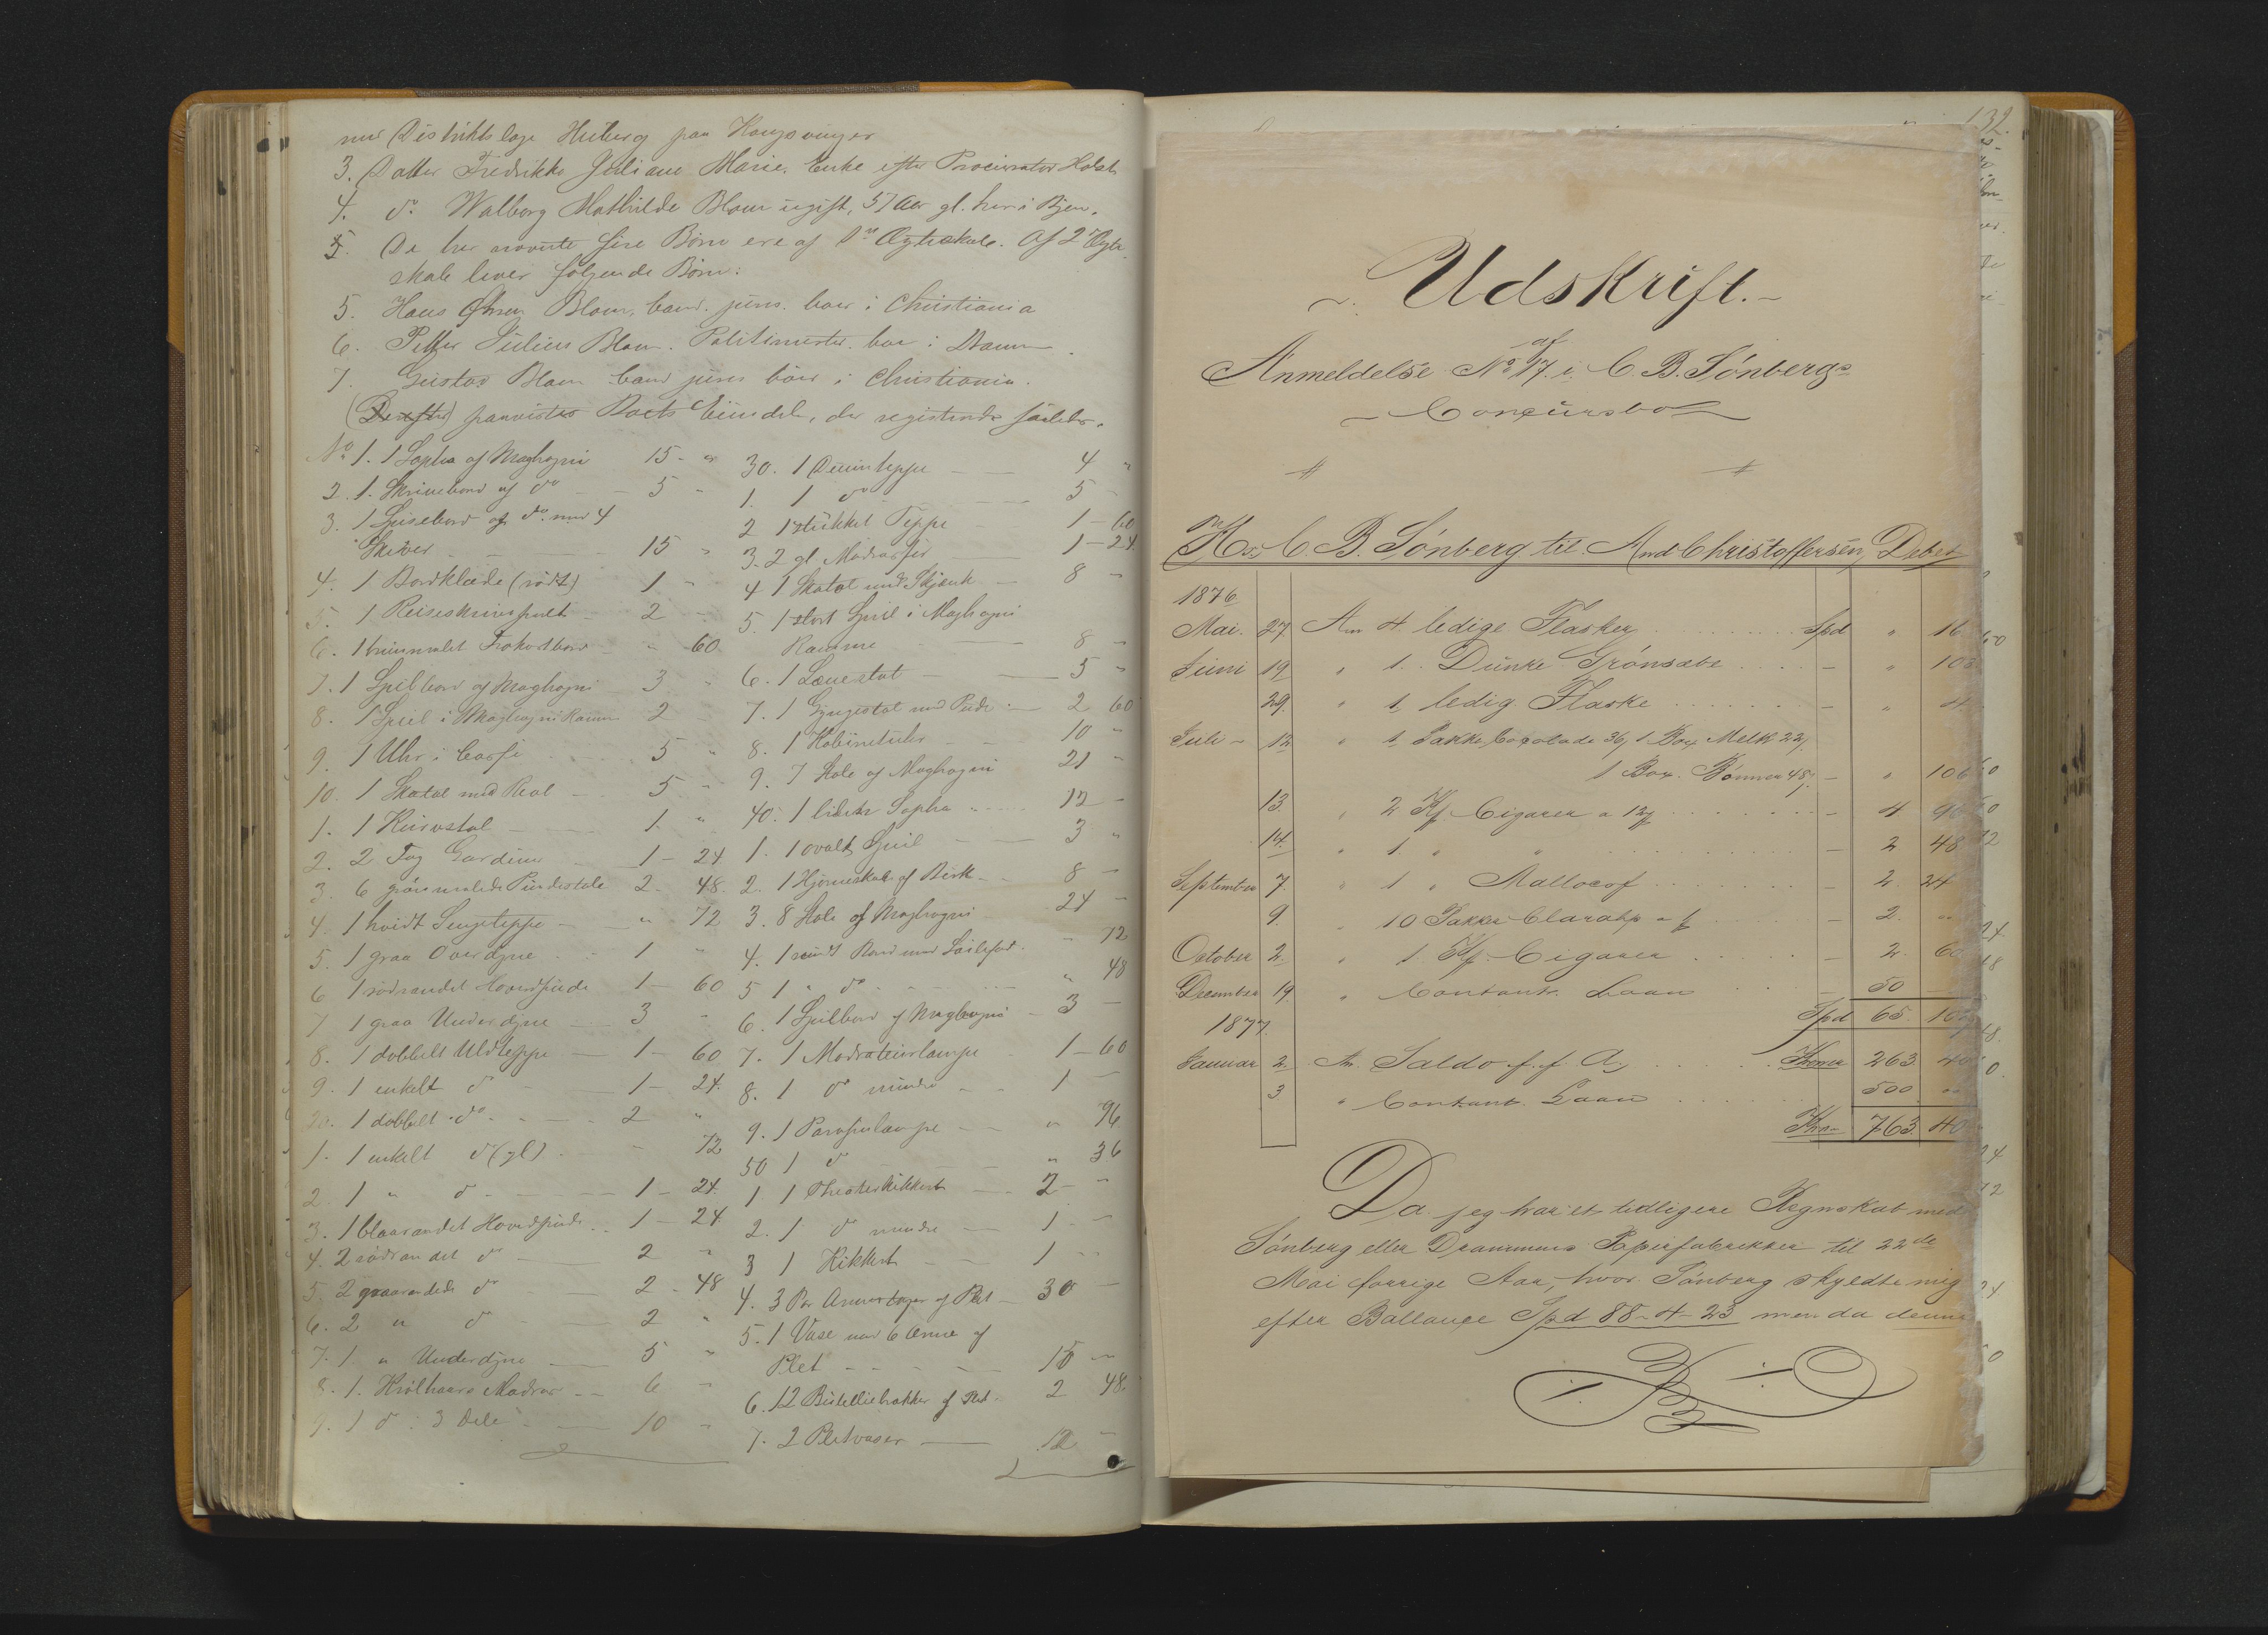 med Distriktslæge Huiberg paa Kongsvinger
3. Datter Fredrikke Juliane Marie, Enke efter Procurator Holst
4. do Walborg Mathilde Blom ugift, 57 Aar gl. her i Byen.
5. De her nævnte fire Børn ere af 1ste Ægteskab. Af 2det Ægte-
skab lever følgende Børn:
5. Hans Blom, cand. juris. boer i Christiania
6. Petter Julius Blom. Politimester. boer i Dramm
7. Gustav Blom cand juris boer i Christiania.
(Derefter) paavistes Boets Eiendele, der registreredes saaledes.
No 1. 1 Sopha af Maghogni 15 - "
2. 1. Skrivebord af do - - 5 "
3. 1 Spisebord af do. med 4
Skiver - - 15 "
4. 1 Bordklæde (rødt) 1 "
5. 1 Reiseskrivepult - 2 -
6. 1 brunmalet Frokostbord - " 60
7. 1 Spilbord af Maghogni 3 "
8. 1 Speil i Maghogni Ramme 2
9. 1 Uhr i Casse 5 "
10. 1 Skatol med Reol - 5 - "
1. 1 Kurvstol - 1. "
2. 2 Fag Gardiner - 1 - 24
3. 6 grønmalede Pindestole 2 - 48
4. 1 hvidt Sengeteppe - " 72
5. 1 graa Overdyne - 1 "
6 1 rødrandet Hovedpude 1 - 60
7 1 graa Underdyne - 3 "
8. 1 dobbelt Uldteppe - 1 - 60
9. 1 enkelt do - 1 - 24.
20. 1 dobbelt do - - 2 "
1. 1 enkelt do (gl) - - 72
2. 1 " do - - 1 - 24
3. 1 blaarandet Hovedpude. 1 - 24
4. 2 rødrandet do - 2 "
5. 2 graarandede do 2 - 48
6. 2 " do 2 "
7. 1. " Underdyne - 5 "
8. 1. Krølhaars Madras - - 6 "
9. 1 do i 3 Dele - 10 "
30. 1 Duunteppe - - 4 "
1. 1 do - - 5 -
2 1 stukket Teppe - 1 - 60
3. 2 gl. Madrasser - 1 - 24
4 1 Skatol med Skjænk - 8 "
5. 1 stort Speil i Maghogni
Ramme - 8 -
6. 1 Lænestol - - 5 "
7. 1 Gyngestol med Pude - 2 60
8. 1 Kabinetuhr - - 10 "
9. 7 Stole af Maghogni 21 -
40. 1 lidet Sopha - 12 -
1. 1 ovalt Speil - 3 "
2. 1 Hjørneskab af Birk - 8 -
3. 8 Stole af Maghogni 24 -
4. 1 rundt Bord med Søilefod. - 72
5 1 " do - - " 48
6. 1 Spilbord af Maghogni - 3 -
7. 1 Moderateurlampe - 1 - 60
8. 1 do mindre - 1 -
9. 1 Parafinlampe - " 96
50 1 do - - " 36
1. 1 Theaterkikkert - 2 - "
2. 1 do mindre - 1 - -
3 1 Kikkert - - 1 - -
4. 3 Par Armestager af Plet - 30 -
5. 1 Vase med 6 Arme af
Plet - - - 15 -
6. 12 Bouteillebakker af Plet - 2 48.
7. 2 Pletvaser - 12 -
132.
Udskrift.
af
Anmeldelse No 17. i C. B. Sönbergs
Concursbo
Hr. C. B. Sönberg til And Christoffersen, Debet
1876.
Mai. 27 An 4 ledige Flasker Spd " 16
Juni 19 " 1. Dunke Grönsæbe - " 108
29. " 1 ledig Flaske - " 4
Juli - 12 " 1 Pakke Cocolade 36, 1 Box Melk 22,
1 Box. Bönner 48, - " 106
13. " 2 Kf. Cigarer a 12 - 4 96
14. " 1 " " - 2 48
September 7. " 1 " Mallocof - 2 24
9. " 10 Pakker - 2. "
October 2. " 1 Kf. Cigarer - 2. 60
December 19 " Contant. Laan - 50 -
Spd 65. 102
1877.
Januar 2. An Saldo f. f. A. Kroner 263 40
3 " Contant. Laan 500 "
Kro- 763 40
Da jeg har et tidligere Regnskab med
Sönberg eller Drammens Papirfabrikker til 22de
Mai forrige Aar, hvor Sönberg skyldte mig
efter Ballance Spd 88-4-23 men da denne